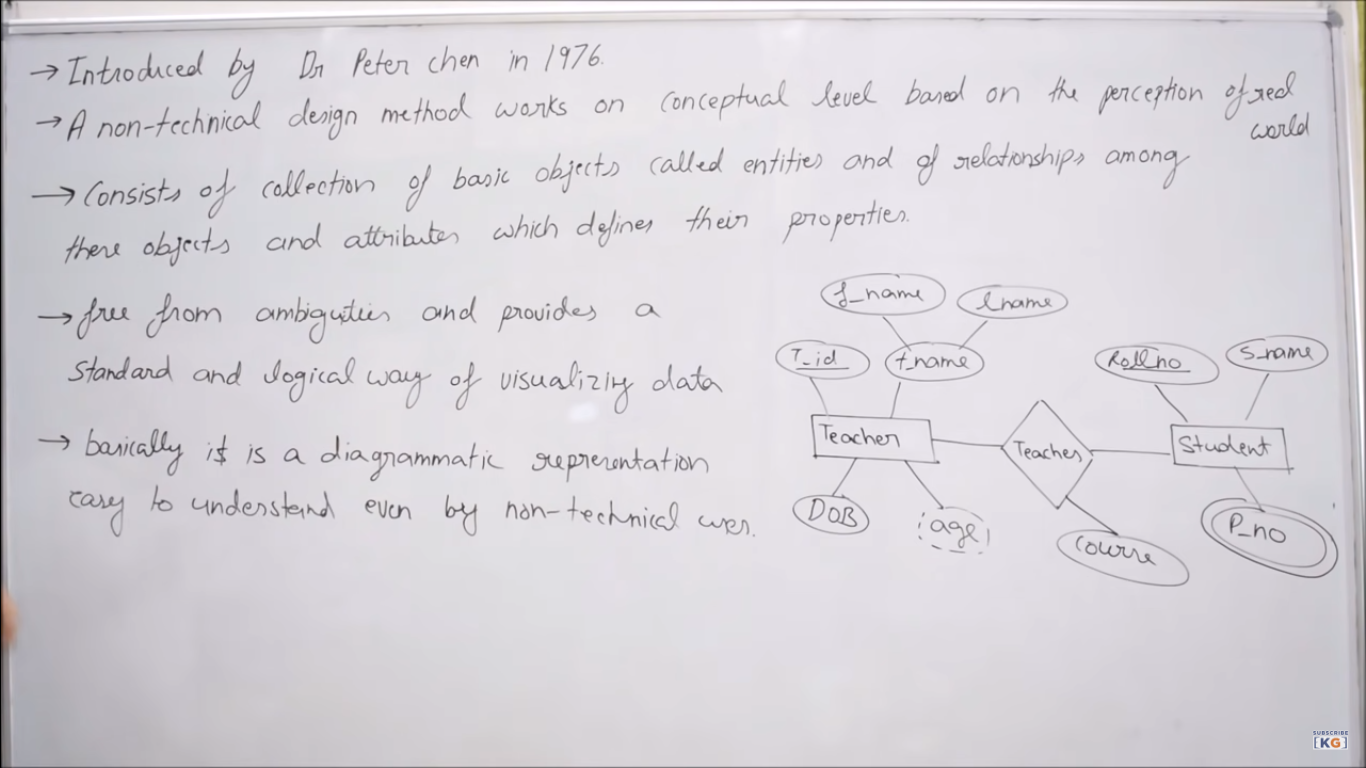 → Introduced by Dr Peter chen in 1976.
→ A non-technical design method works on conceptual level based on the perception of real
world
→ Consists of collection of basic objects called entities and of relationships among
these objects and attributes which defines their properties.
→ free from ambiguties and provides a
Standard and logical way of visualizing data
→ basically it is a diagrammatic representation
easy to understand even by non-technical user.
f_name
lname
T_id
t_name
Roll_no
S_name
Teacher
Teaches
Student
DOB
age
Course
P_no
SUBSCRIBE
[KG]